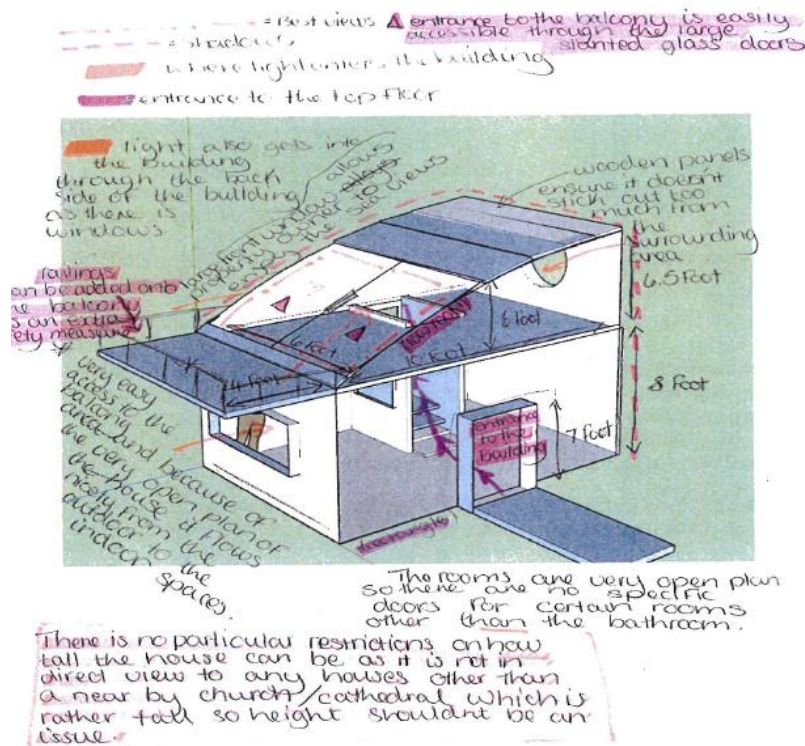 = Best views
= shadows
where light enters the building
entrance to the top floor
entrance to the balcony is easily
accessible through the large
slanted glass doors
light also gets into
the building
through the back
side of the building
as there is
windows
large front window allows
property owner to
enjoy the sea views
wooden panels
ensure it doesn't
stick out too
much from
the
surrounding
area
railings
can be added onto
the balcony
as an extra
safety measure
6.5 Foot
6 foot
6 foot
10 foot
4 foot
8 Foot
7 foot
entrance
to the
building
very easy
access to the
balcony
area and because of
the very open plan of
the house it flows
nicely from the
outdoor to the
indoor
spaces
The rooms are very open plan
so there are no specific
doors for certain rooms
other than the bathroom.
There is no particular restrictions on how
tall the house can be as it is not in
direct view to any houses other than
a near by church/cathedral which is
rather tall so height shouldnt be an
issue.